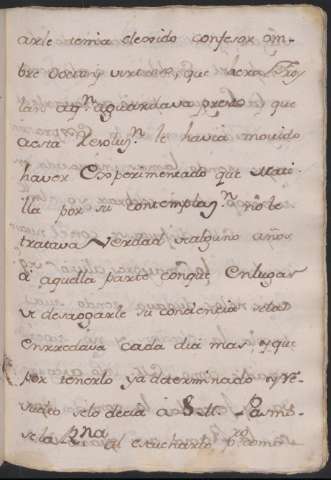 arle tenia elexido confesor om-
bre Docto, y virtuoso, que hera Froy
lan a qn. aguardava presto y que
a esta Resoluzn. le havia movido
haver Experimentado que Mati-
lla por su contemplazn. no le
tratava Verdad alguno años
a aquella parte conque, En lugar
de desaogarle su conciencia se la
Enrredava cada dia mas, y que
por tenerlo ya determinado y re-
suelto se lo decia a S. M. Pasmo-
se la Rna al escucharlo pro. como